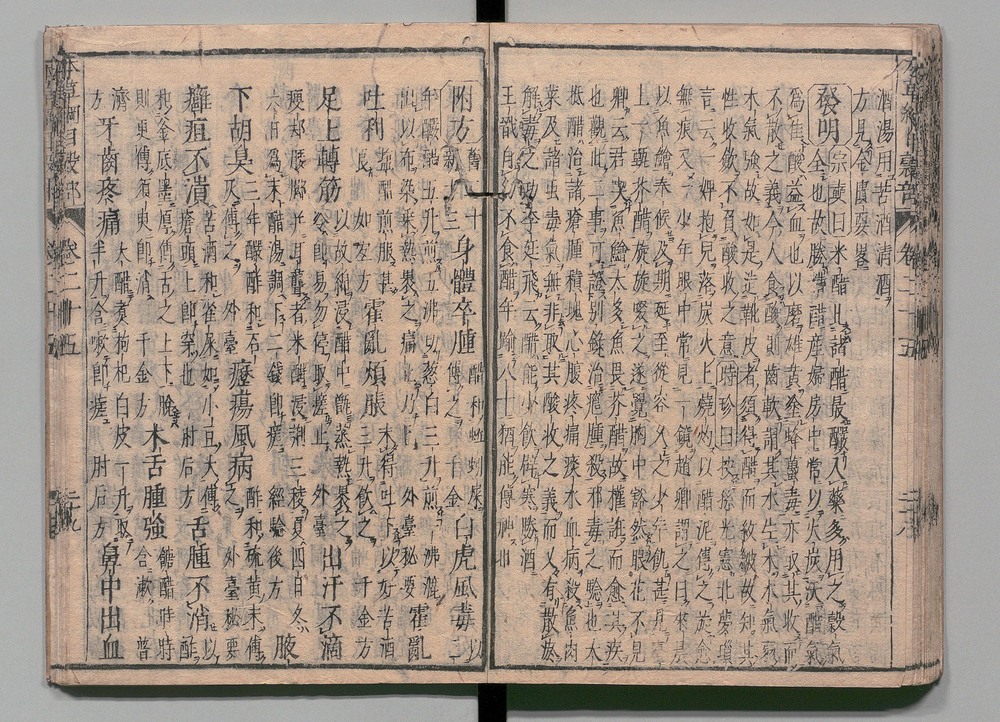 本草綱目穀部 卷二十五
酒湯用苦酒清酒
方見金匱要畧
發明 宗奭曰米醋比諸醋最釅入藥多用之穀氣
全也故勝糟醋産婦房中常以火炭沃醋氣
爲佳酸益血也以磨雄黄塗蜂蠆毒亦取其收而
不散之義今人食酸則齒軟謂其水生木水氣弱
木氣強故如是造靴皮者須得醋而紋皺故知其
性收斂不負酸收之意時珍曰按孫光憲北夢瑣
言云一婢抱兒落炭火上燒灼以醋泥傅之旋愈
無痕又一少年眼中常見一鏡趙卿謂之曰來晨
以魚鱠奉候及期延至從容久之少年飢甚見臺
上一甌芥醋旋旋啜之遂覺胸中豁然眼花不見
卿云君喫魚鱠太多魚畏芥醋故權誑而愈其疾
也觀此二事可證別錄治癰腫殺邪毒之驗也大
抵醋治諸瘡腫積塊心腹疼痛痰水血病殺魚肉
菜及諸蟲毒氣無非取其酸收之義而又有散瘀
解毒之功李延飛云醋能少飲辟寒勝酒
王戩自幼不食醋年踰八十猶能傳神也
附方 舊二十新十三 身體卒腫 醋和蚯蚓屎傅之千金 白虎風毒 以三
年釅醋五升煎五沸切葱白三升煎一沸漉出以布染乘熱裹之痛止乃止外臺秘要 霍亂
吐利 鹽醋煎服甚良如聖方 霍亂煩脹 未得吐下以好苦酒三升飲之千金方
足上轉筋 以故綿浸醋中甑蒸熱裹之冷即易勿停取瘥止外臺 出汗不滴
瘦却腰脚并耳聾者米醋浸荆三稜夏四日冬六日爲末醋湯調下二錢即瘥經驗後方 腋
下胡臭 三年釅酢和石灰傅之外臺 癧瘍風病 酢和硫黄末傅之外臺秘要
癰疽不潰 苦酒和雀屎如小豆大傅瘡頭上即穿也肘后方 舌腫不消 以酢
和釜底墨厚傅舌之上下脫則更傅須臾即消千金方 木舌腫強 糖醋時時含漱普
濟方 牙齒疼痛 大醋煮枸杞白皮一升取半升含嗽即瘥肘后方 鼻中出血
本草綱目穀部 卷二十五 二十九